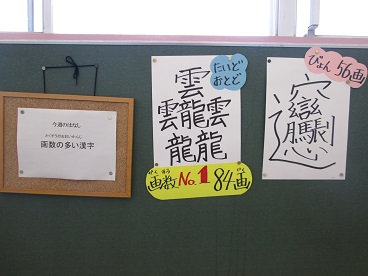 今週のはなし
かくすうのおおいかんじ
画数の多い漢字
たいど
おとど
𱁬
かくすう かく
画数 No.1 84画
びょん 56画
𰻞